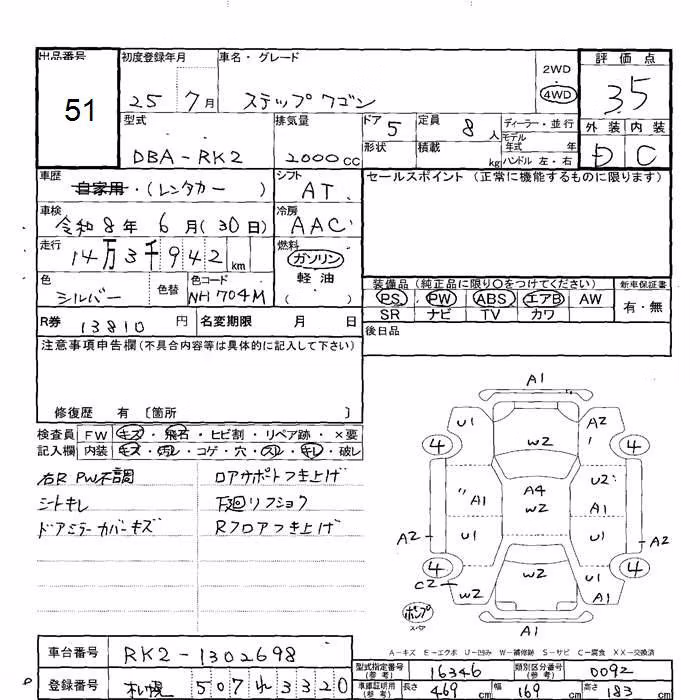 出品番号
51
初度登録年月
25 7月
車名・グレード
ステップワゴン
2WD
4WD
評価点
3.5
外装 内装
D C
型式
DBA-RK2
排気量
2000cc
ドア 5
形状
定員 8人
積載 kg
ディーラー・並行
モデル年式 年
ハンドル 左・右
車歴
自家用・(レンタカー )
シフト
AT
車検
令和8年6月(30日)
冷房
AAC
走行
14万3千942km
燃料
ガソリン
軽油
( )
色
シルバー
色替
色コード
NH704M
R券 13810円
名変期限 月 日
セールスポイント(正常に機能するものに限ります)
装備品(純正品に限り○をつけてください)
PS PW ABS エアB AW
SR ナビ TV カワ
新車保証書
有・無
後日品
注意事項申告欄(不具合内容等は具体的に記入して下さい)
修復歴 有〔箇所 〕
検査員 FW キズ・飛石・ヒビ割・リペア跡・×要
記入欄 内装 キズ・汚レ・コゲ・穴・スレ・キレ・破レ
右R PW不調
シートキレ
ドアミラーカバーキズ
ロアサポトつき上げ
下廻リフショク
Rフロアつき上げ
A1
U1
A2
4
W2
4
U2
A4
W2
A1
A1
A2
U1
U1
A2
4
4
C2
W2
W2
U1
A1
ポンプ
スペア
A1
A-キズ E-エクボ U-凹み W-補修跡 S-サビ C-腐食 XX-交換済
車台番号
RK2-1302698
登録番号
札幌 507 れ 3320
型式指定番号(参考)
16346
類別区分番号(参考)
0092
車庫証明用(参考)
長さ 469cm
幅 169cm
高さ 183cm